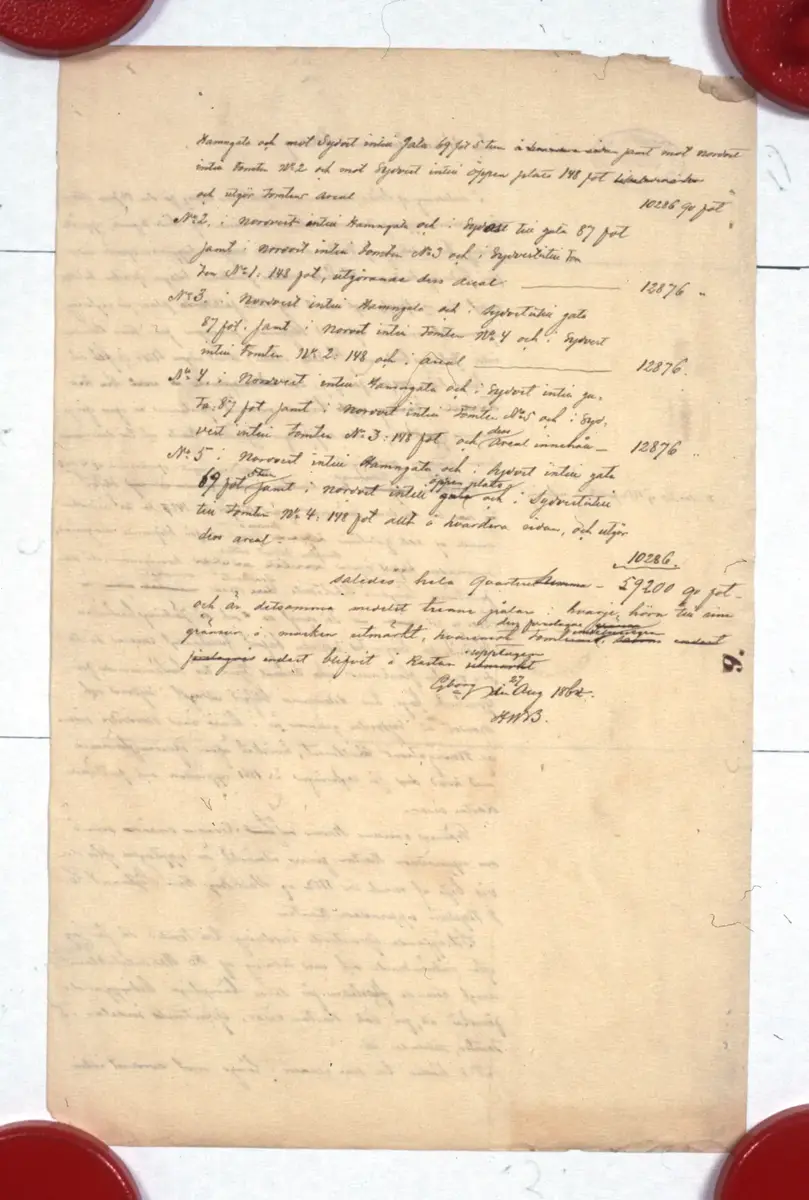 Hamngata och mot Sydost intill Gata 69 fot 5 tum å samma sidan jamt mot Nordost
intill Tomten N:o 2 och mot Sydvest intill öppen plats 148 fot
och utgör Tomtens Areal 10286 qv fot
N:o 2. i Nordvest intill Hamngata och i Sydost till gata 87 fot
jamt i Nordost intill Tomten N:o 3 och i Sydvest intill Tom
ten N:o 1: 148 fot, utgörande dess areal 12876 "
N:o 3. i Nordvest intill Hamngata och i Sydost intill gata
87 fot. jamt i Nordost intill Tomten N:o 4 och i Sydvest
intill Tomten N:o 2: 148 och i Areal 12876.
N:o 4. i Nordvest intill Hamngata och i Sydost intill ga,
ta, 87 fot jamt i Nordost intill Tomten N:o 5 och i Syd,
vest intill Tomten N:o 3: 148 fot och dess Areal innehåll 12876 "
N:o 5 i Nordvest intill Hamngata och i Sydost intill gata
69 fot 5 tum jamt i Nordost intill öppen plats gata och i Sydvest intill
till Tomten N:o 4: 148 fot allt å hvardera sidan, och utgör
dess areal. 10286.
således hela Quarteret Summa 59200 qv fot
och är detsamma medelst trenne pålar i hvarje hörn till sina
gränsor å marken utmärkt, hvaremot Tomt
endast blifvit å Kartan upptagen utmärkt
Gborg den 27 Aug 1862.
HWB.
9.